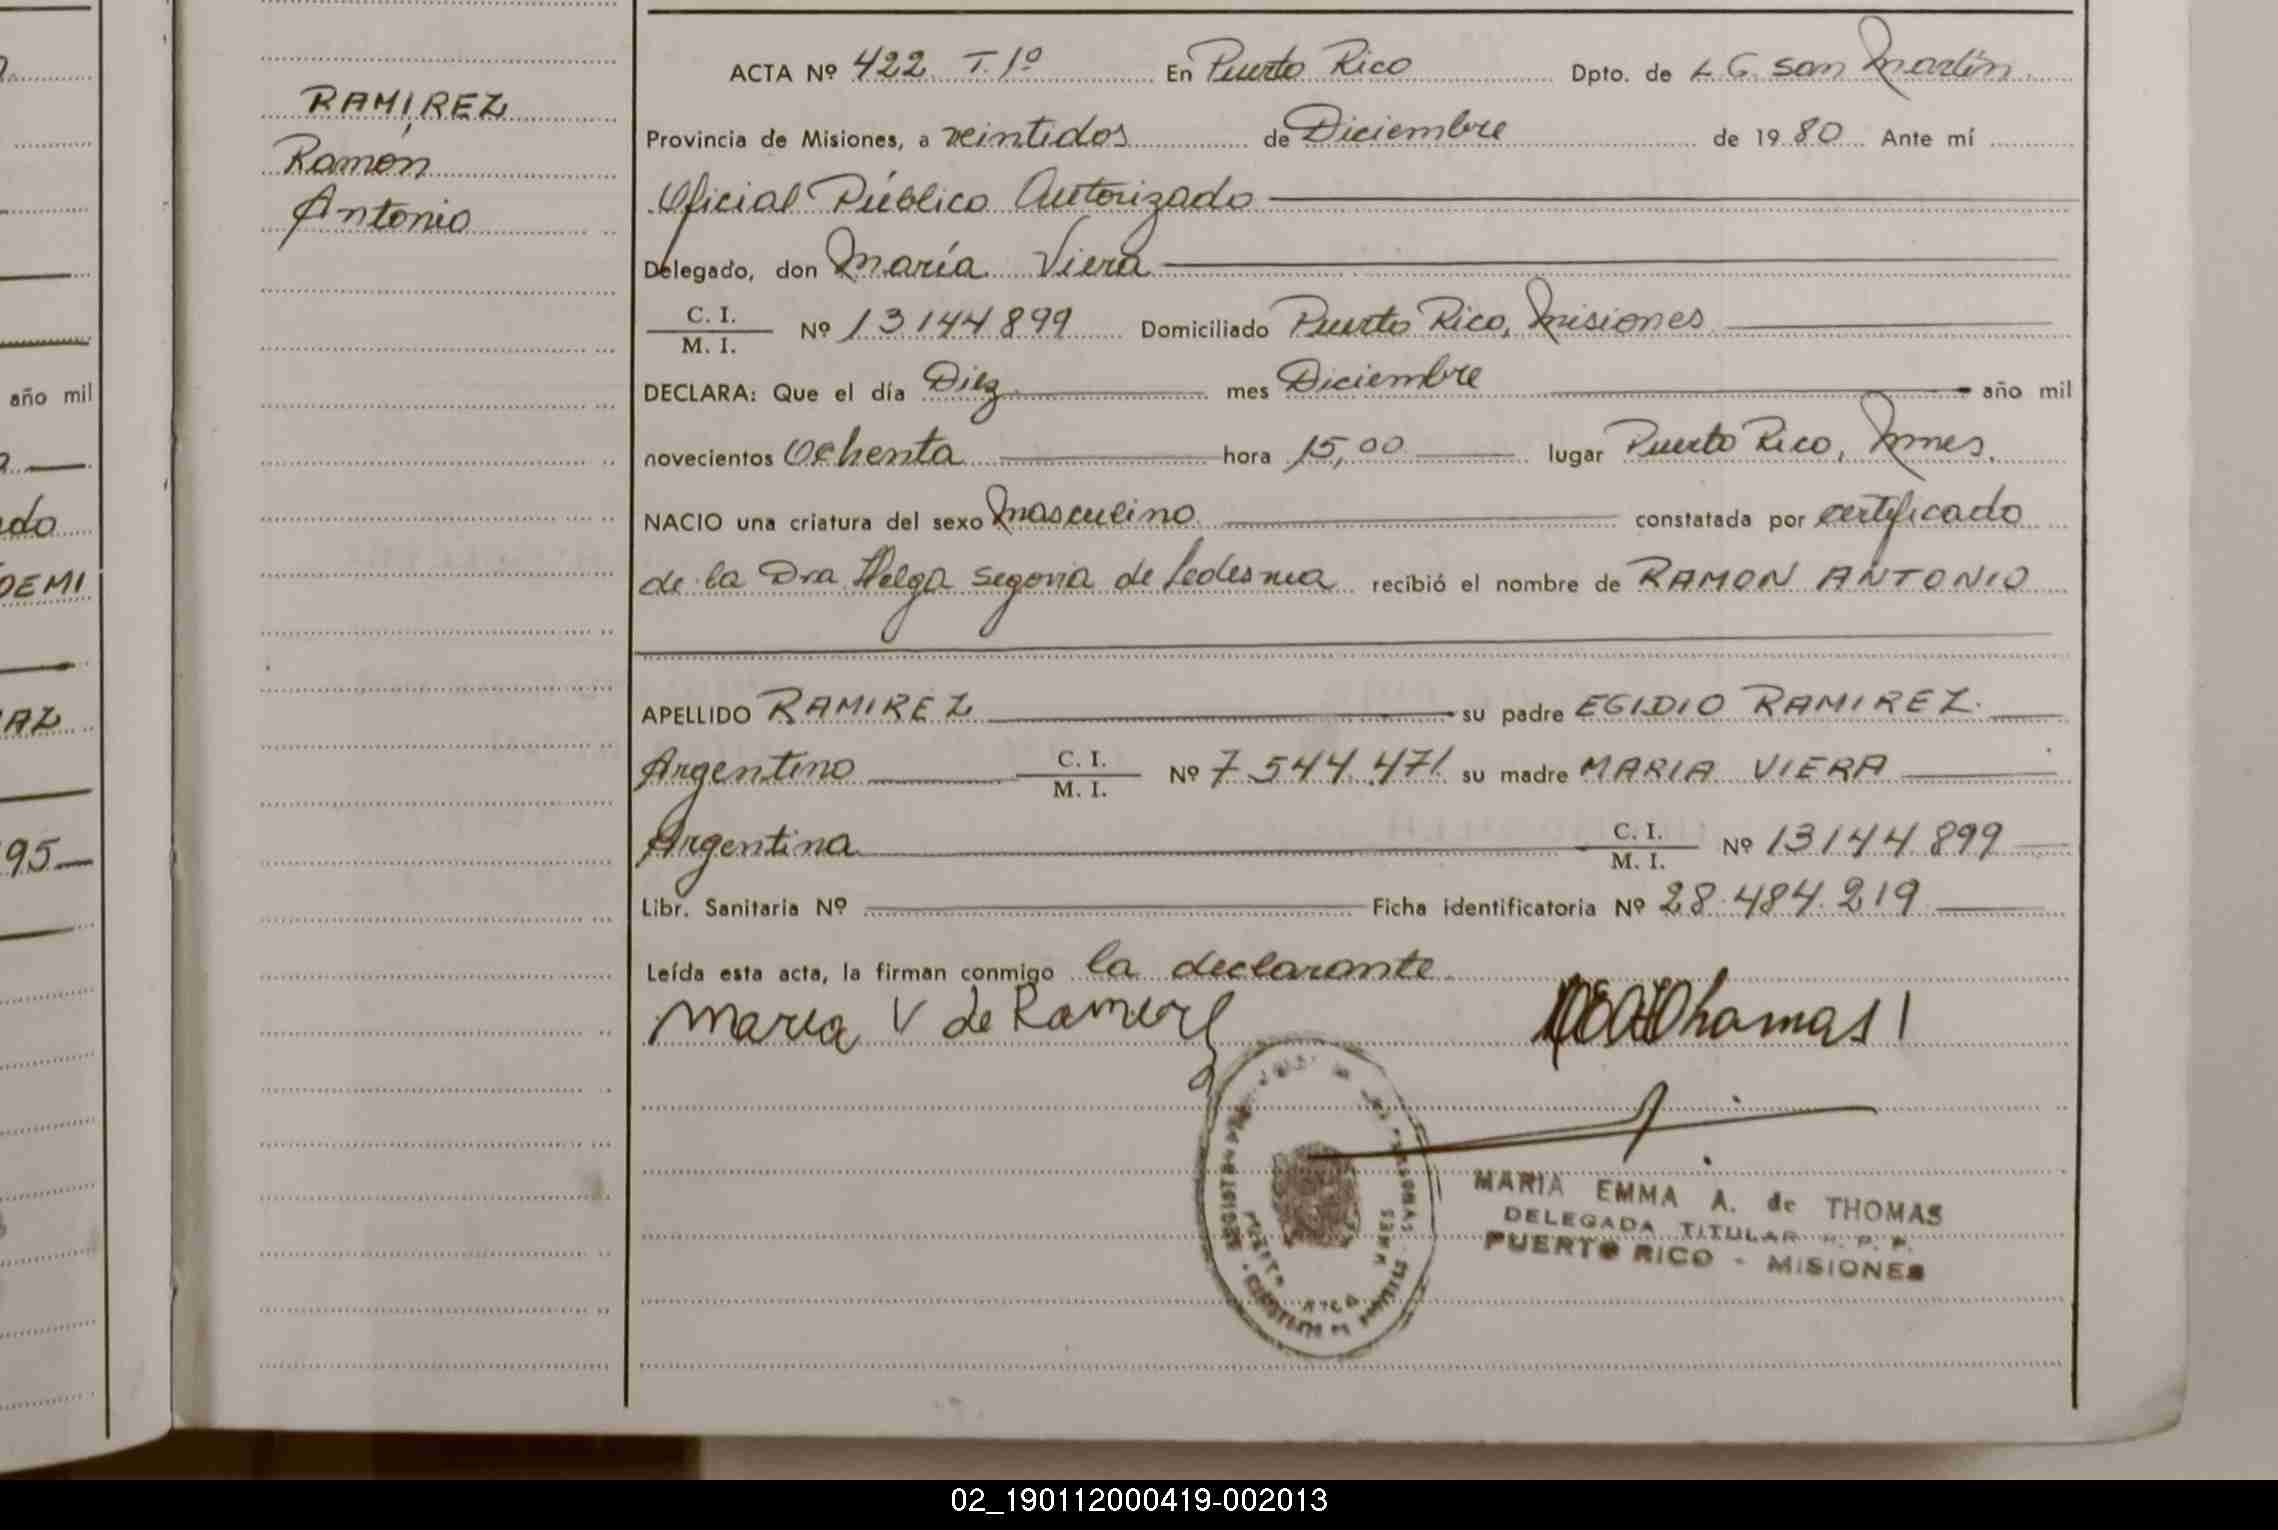 RAMIREZ
Ramón
Antonio
ACTA Nº 422 T. 1º En Puerto Rico Dpto. de L. G. San Martín
Provincia de Misiones, a veintidos de Diciembre de 1980 Ante mí
Oficial Público Autorizado
Delegado, don María Viera
C. I.
M. I. Nº 13144899 Domiciliado Puerto Rico, Misiones
DECLARA: Que el día Diez mes Diciembre año mil
novecientos Ochenta hora 15,00 lugar Puerto Rico, Mnes.
NACIO una criatura del sexo masculino constatada por certificado
de la Dra Helga Segovia de Ledesma recibió el nombre de RAMON ANTONIO
APELLIDO RAMIREZ su padre EGIDIO RAMIREZ.
Argentino C. I.
M. I. Nº 7.544.471 su madre MARIA VIERA
Argentina C. I.
M. I. Nº 13144899
Libr. Sanitaria Nº Ficha identificatoria Nº 28.484.219
Leída esta acta, la firman conmigo la declarante
Maria V de Ramirez
Thomas
MARIA EMMA A. de THOMAS
DELEGADA TITULAR R. P. P.
PUERTO RICO - MISIONES
PUERTO RICO
año mil
ado
OEMI
AZ
95
02_190112000419-002013